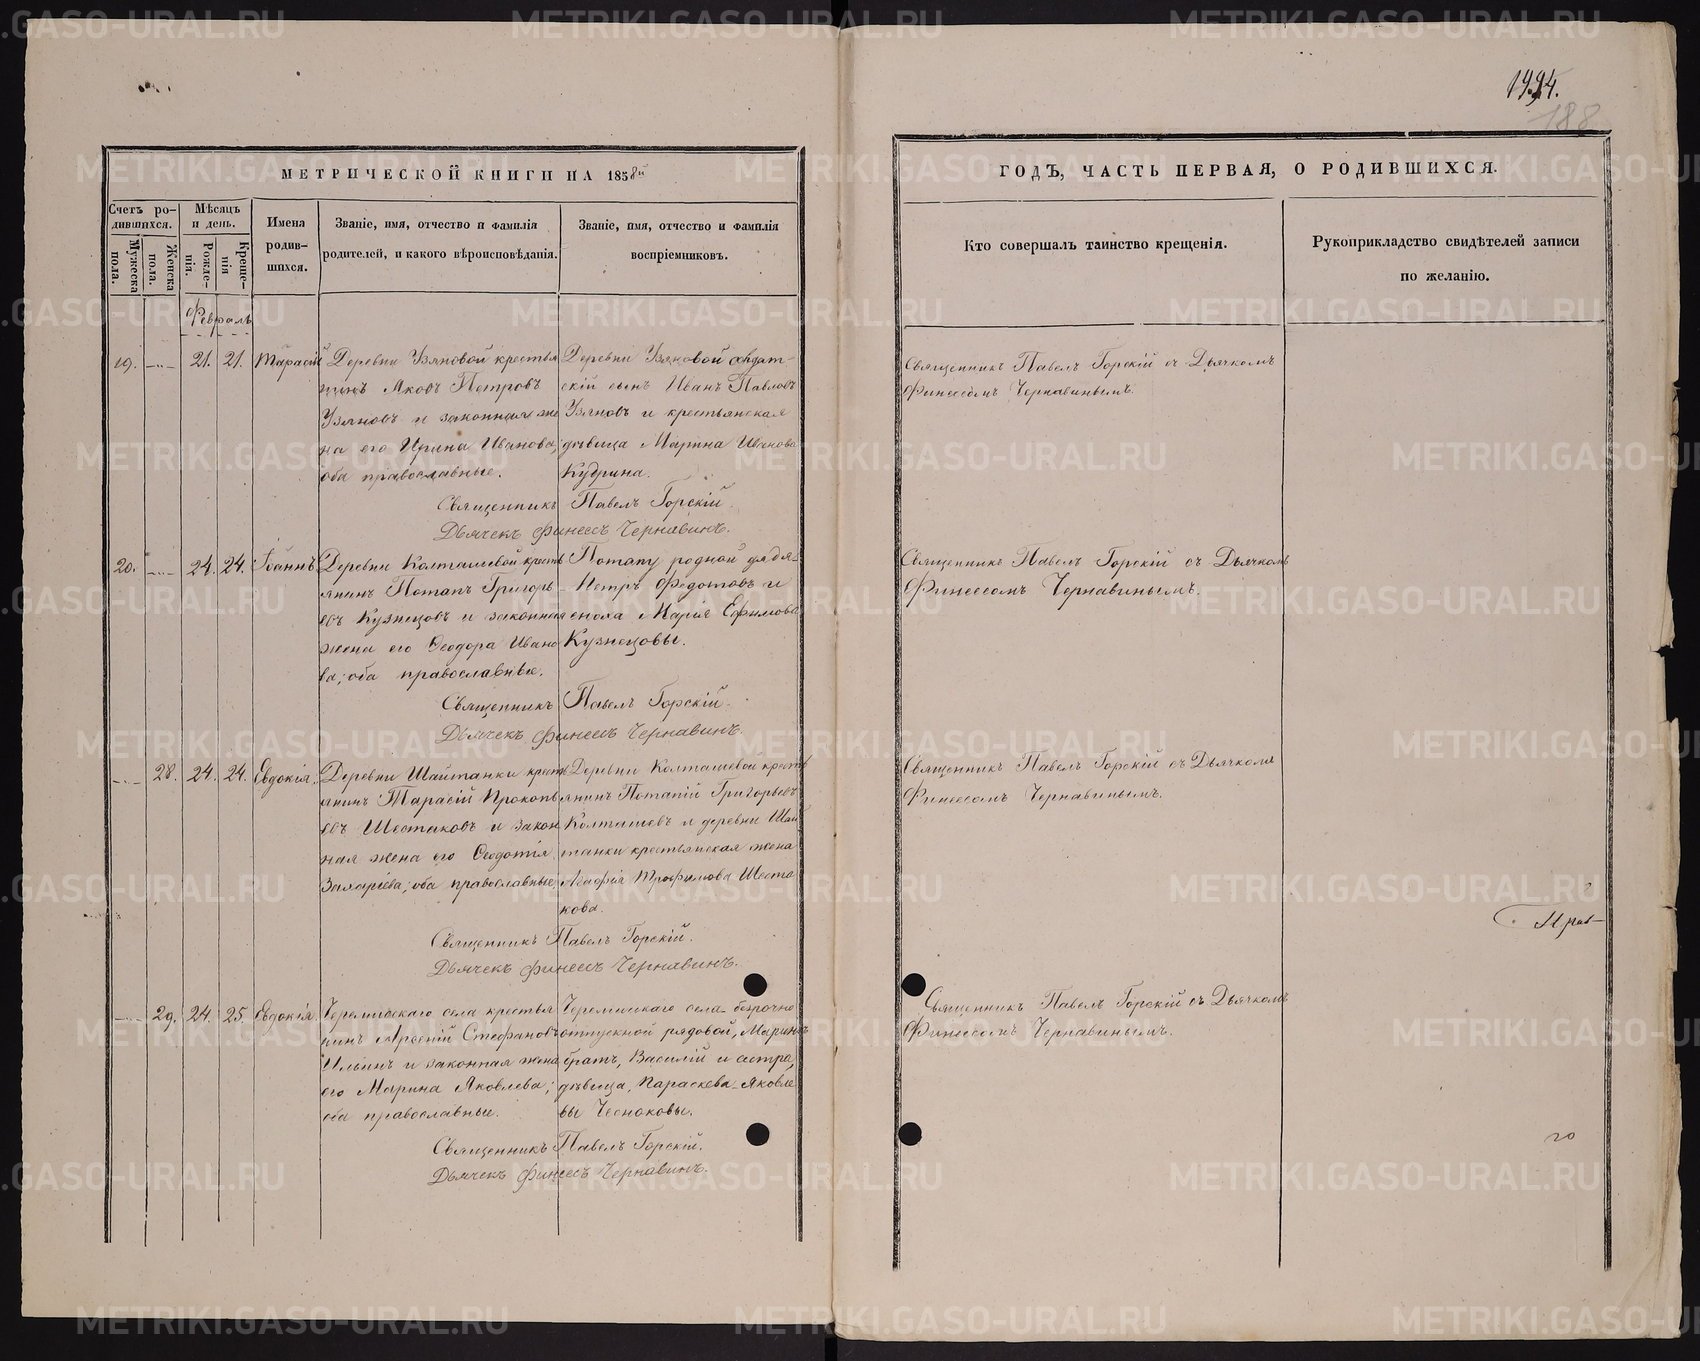 1994.
188
МЕТРИЧЕСКОЙ КНИГИ НА 1858й
Счетъ родившихся.
Мужеска пола.
Женска пола.
Мѣсяцъ и день.
Рожденія.
Крещенія
Имена родившихся.
Званіе, имя, отчество и фамилія
родителей, и какого вѣроисповѣданія.
Званіе, имя, отчество и фамилія
воспріемниковъ.
Февраль
19. 21. 21. Тарасій
Деревни Узяновой крестья
нинъ Яковъ Петровъ
Узяновъ и законная же
на его Ирина Иванова;
оба православные.
Деревни Узяновой солдат-
скій сынъ Иванъ Павловъ
Узяновъ и крестьянская
дѣвица Марина Иванова
Кудрина.
Священникъ Павелъ Горскій.
Дьячекъ Финеесъ Чернавинъ.
20. 24. 24. Іоаннъ
Деревни Колташевой кресть
янинъ Потапъ Григорь
евъ Кузнецовъ и законная
жена его Ѳеодора Ивано
ва; оба православные.
Потапу родной дядя-
Петръ Федотовъ и
сноха Марія Ефимова
Кузнецовы.
Священникъ Павелъ Горскій.
Дьячекъ Финеесъ Чернавинъ.
28. 24. 24. Евдокія.
Деревни Шайтанки кресть
янинъ Тарасій Прокопь
евъ Шестаковъ и закон
ная жена его Ѳеодотія
Захаріева; оба православные.
Деревни Колташевой кресть
янинъ Потапій Григорьевъ
Колташевъ и деревни Шай
танки крестьянская жена
Агафія Трофимова Шеста
кова.
Священникъ Павелъ Горскій.
Дьячекъ Финеесъ Чернавинъ.
29. 24. 25. Евдокія.
Черемисскаго села крестья
нинъ Арсеній Стефановъ
Ильинъ и законная жена
его Марина Яковлева;
оба православные.
Черемисскаго села безсрочно
отпускной рядовой, Маринѣ
братъ, Василій и сестра,
дѣвица, Параскева Яковле
вы Чесноковы.
Священникъ Павелъ Горскій.
Дьячекъ Финеесъ Чернавинъ.
ГОДЪ, ЧАСТЬ ПЕРВАЯ, О РОДИВШИХСЯ.
Кто совершалъ таинство крещенія.
Рукоприкладство свидѣтелей записи
по желанію.
Священникъ Павелъ Горскій съ Дьячкомъ
Финеесомъ Чернавинымъ.
Священникъ Павелъ Горскій съ Дьячкомъ
Финеесомъ Чернавинымъ.
Священникъ Павелъ Горскій съ Дьячкомъ
Финеесомъ Чернавинымъ.
Священникъ Павелъ Горскій съ Дьячкомъ
Финеесомъ Чернавинымъ.
METRIKI.GASO-URAL.RU